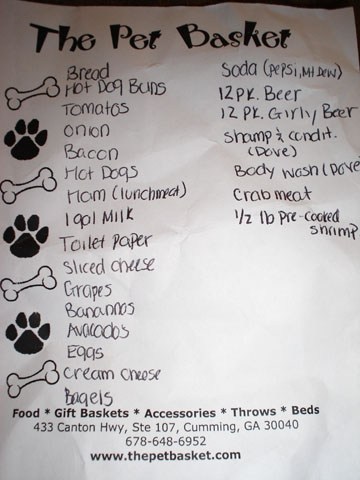 The Pet Basket
Bread
Hot Dog Buns
Tomatos
Onion
Bacon
Hot Dogs
Ham (lunchmeat)
1 gal Milk
Toilet Paper
Sliced cheese
Grapes
Banannas
Avacados
Eggs
Cream Cheese
Bagels
Soda (Pepsi, Mt Dew)
12 pk. Beer
12 pk. Girly Beer
Shamp & condit.
(Dave)
Body wash (Dave)
Crab meat
1/2 lb Pre-cooked
shrimp
Food * Gift Baskets * Accessories * Throws * Beds
433 Canton Hwy, Ste 107, Cumming, GA 30040
678-648-6952
www.thepetbasket.com